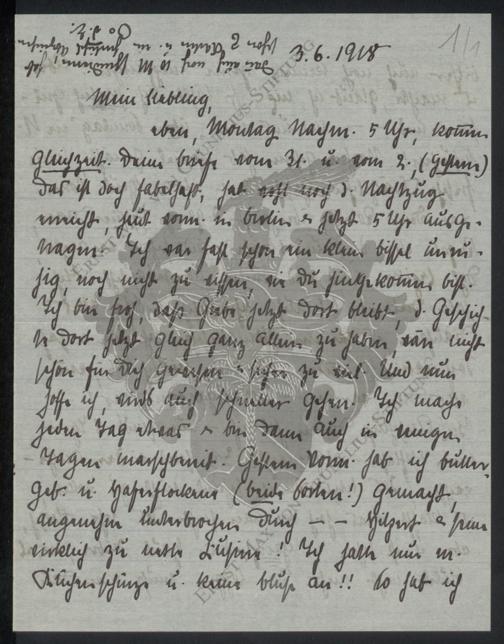 3.6.1918
1/1
Mein Liebling,
eben, Montag Nachm. 5 Uhr, kommen
gleichzeit. Deine Briefe vom 31. u. vom 2., (gestern)
das ist doch fabelhaft, hat wohl noch d. Nachtzug
erreicht, heut vorm. in Berlin & jetzt 5 Uhr ausge-
tragen. Ich war fast schon ein klein bissel unru-
hig, noch nicht zu wissen, wie Du hingekommen bist.
Ich bin froh, daß Grebe jetzt dort bleibt, d. Geschich-
te dort jetzt gleich ganz allein zu haben, wär nicht
schön für Dich gewesen & sicher zu viel. Und nun
hoffe ich, wirds auch schneller gehen. Ich mache
jeden Tag etwas & bin dann auch in wenigen
Tagen marschbereit. Gestern vorm. hab ich Butter-
geb. u. Haferflockene (beide Sorten!) gemacht,
angenehm unterbrochen durch — — Hilgert & seine
wirklich zu nette Cusine! Ich hatte nur m.
Küchenschürze u. keine Bluse an!! So hab ich